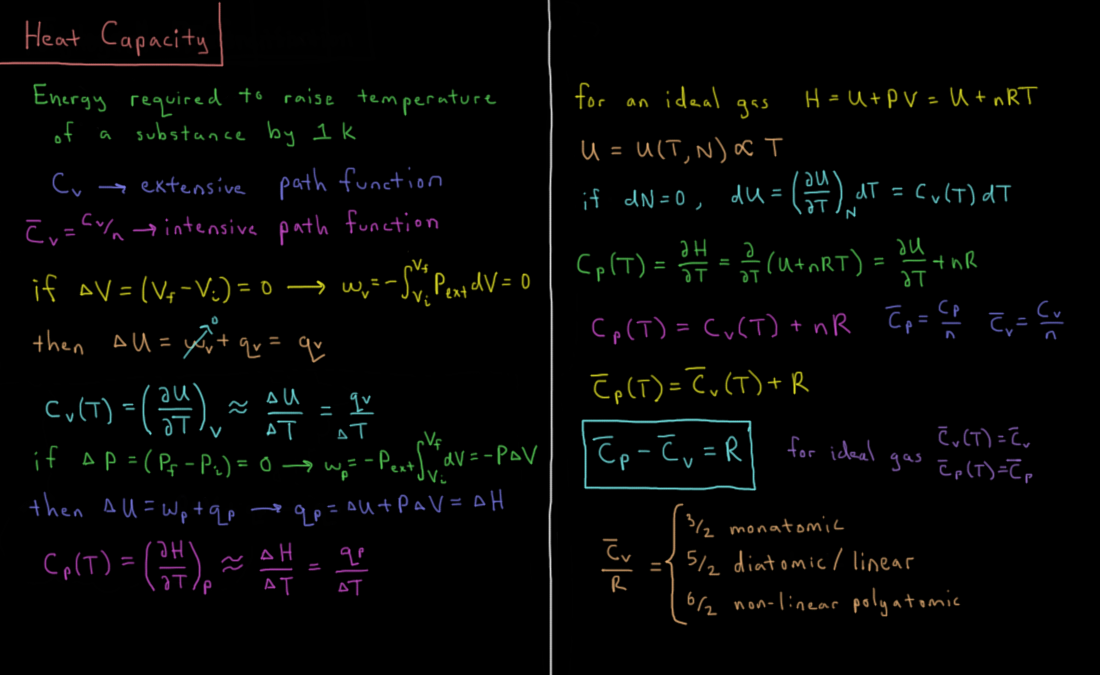 Heat Capacity
Energy required to raise temperature
of a substance by 1 K
C_v → extensive path function
C̅_v = C_v/n → intensive path function
if ΔV = (V_f - V_i) = 0 → w_v = -∫_{V_i}^{V_f} P_ext dV = 0
then ΔU = w_v + q_v = q_v
0
C_v(T) = (∂U/∂T)_V ≈ ΔU/ΔT = q_v/ΔT
if ΔP = (P_f - P_i) = 0 → w_p = -P_ext ∫_{V_i}^{V_f} dV = -PΔV
then ΔU = w_p + q_p → q_p = ΔU + PΔV = ΔH
C_p(T) = (∂H/∂T)_P ≈ ΔH/ΔT = q_p/ΔT
for an ideal gas H = U + PV = U + nRT
U = U(T,N) ∝ T
if dN = 0, dU = (∂U/∂T)_N dT = C_v(T) dT
C_p(T) = ∂H/∂T = ∂/∂T (U + nRT) = ∂U/∂T + nR
C_p(T) = C_v(T) + nR C̅_p = C_p/n C̅_v = C_v/n
C̅_p(T) = C̅_v(T) + R
C̅_p - C̅_v = R
for ideal gas C̅_v(T) = C̅_v
C̅_p(T) = C̅_p
C̅_v/R = {
3/2 monatomic
5/2 diatomic / linear
6/2 non-linear polyatomic